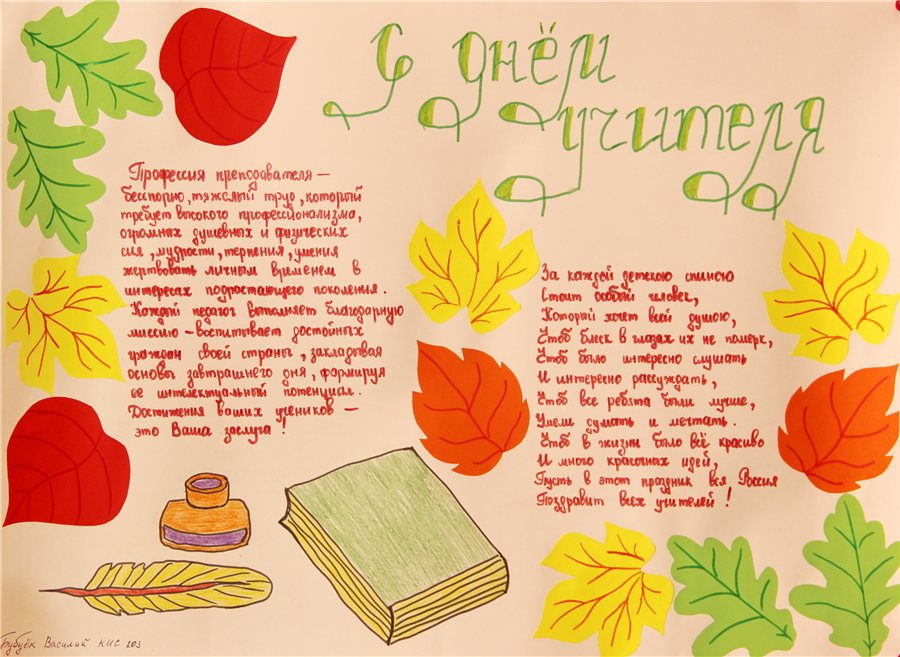 С днём
учителя
Профессия преподавателя —
бесспорно, тяжелый труд, который
требует высокого профессионализма,
огромных душевных и физических
сил, мудрости, терпения, умения
жертвовать личным временем в
интересах подростающего поколения.
Каждый педагог выполняет благодарную
миссию – воспитывает достойных
граждан своей страны, закладывая
основы завтрашнего дня, формируя
ее интелектуальный потенциал.
Достижения ваших учеников —
это Ваша заслуга!
За каждой детскою спиною
Стоит особый человек,
Который хочет всей душою,
Чтоб блеск в глазах их не померк,
Чтоб было интересно слушать
И интересно рассуждать,
Чтоб все ребята были лучше,
Умели думать и мечтать.
Чтоб в жизни было всё красиво
И много красочных идей,
Пусть в этот праздник вся Россия
Поздравит всех учителей!
Василий КИС 203